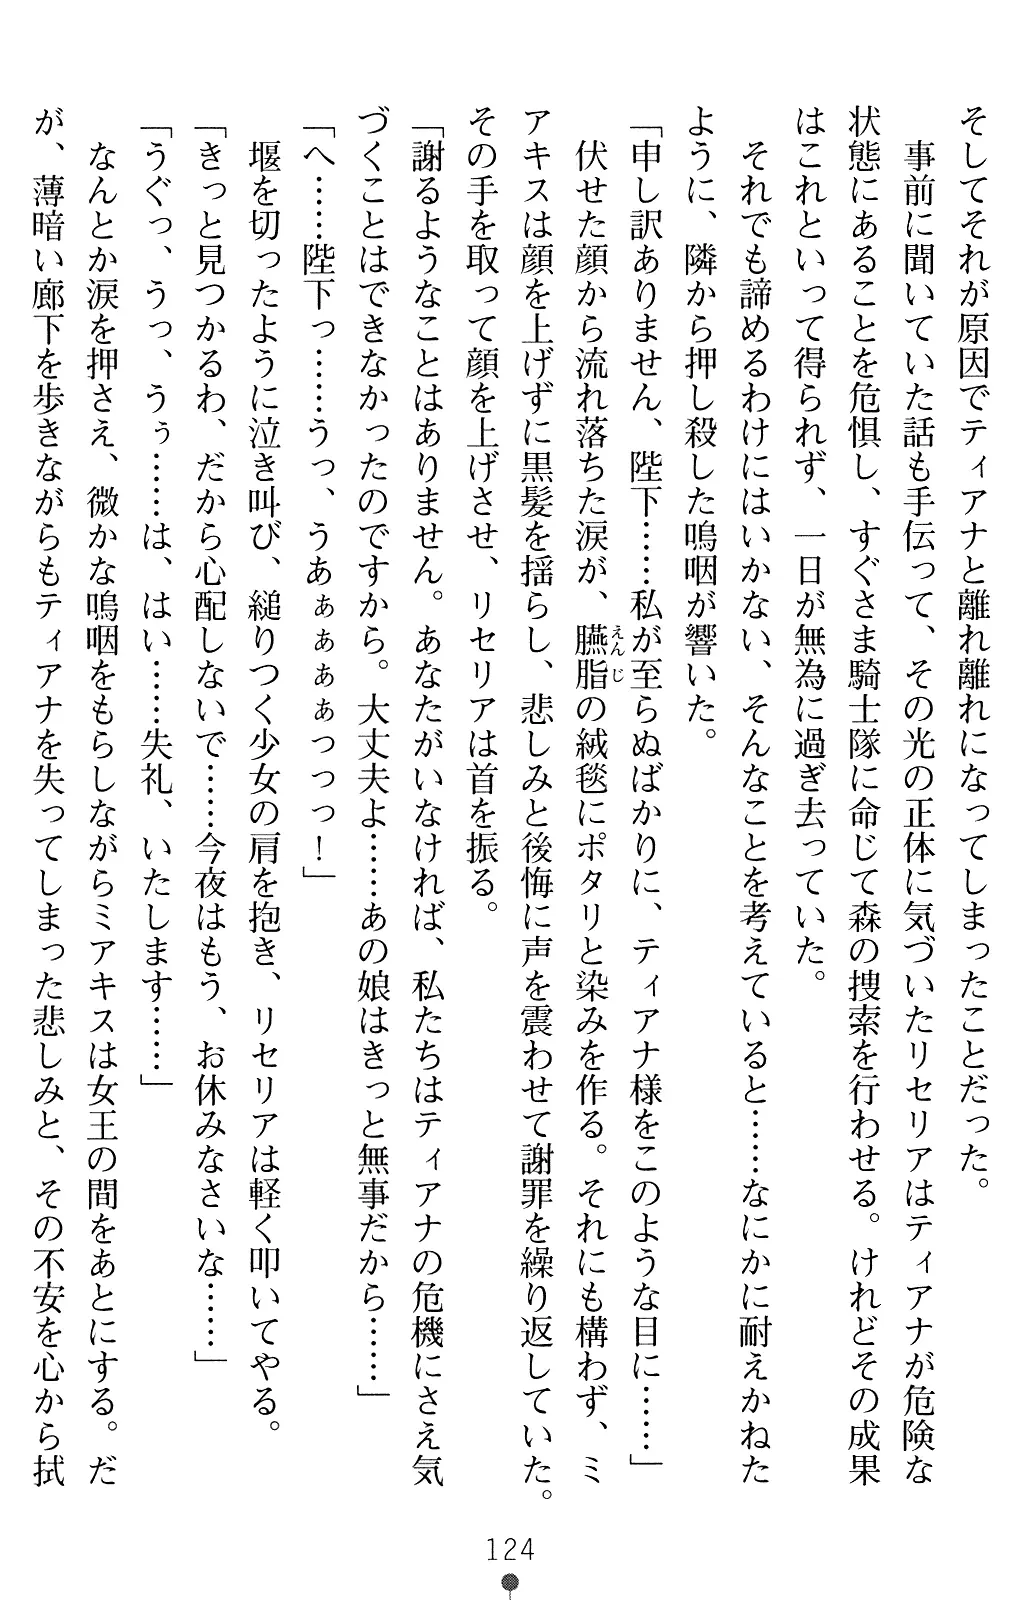 そしてそれが原因でティアナと離れ離れになってしまったことだった。
　事前に聞いていた話も手伝って、その光の正体に気づいたリセリアはティアナが危険な
状態にあることを危惧し、すぐさま騎士隊に命じて森の捜索を行わせる。けれどその成果
はこれといって得られず、一日が無為に過ぎ去っていた。
　それでも諦めるわけにはいかない、そんなことを考えていると……なにかに耐えかねた
ように、隣から押し殺した嗚咽が響いた。
「申し訳ありません、陛下……私が至らぬばかりに、ティアナ様をこのような目に……」
　伏せた顔から流れ落ちた涙が、臙脂の絨毯にポタリと染みを作る。それにも構わず、ミ
えんじ
アキスは顔を上げずに黒髪を揺らし、悲しみと後悔に声を震わせて謝罪を繰り返していた。
その手を取って顔を上げさせ、リセリアは首を振る。
「謝るようなことはありません。あなたがいなければ、私たちはティアナの危機にさえ気
づくことはできなかったのですから。大丈夫よ……あの娘はきっと無事だから……」
「へ……陛下っ……うっ、うあぁぁぁぁっっっ！」
　堰を切ったように泣き叫び、縋りつく少女の肩を抱き、リセリアは軽く叩いてやる。
「きっと見つかるわ、だから心配しないで……今夜はもう、お休みなさいな……」
「うぐっ、うっ、うぅ……は、はい……失礼、いたします……」
　なんとか涙を押さえ、微かな嗚咽をもらしながらミアキスは女王の間をあとにする。だ
が、薄暗い廊下を歩きながらもティアナを失ってしまった悲しみと、その不安を心から拭
124